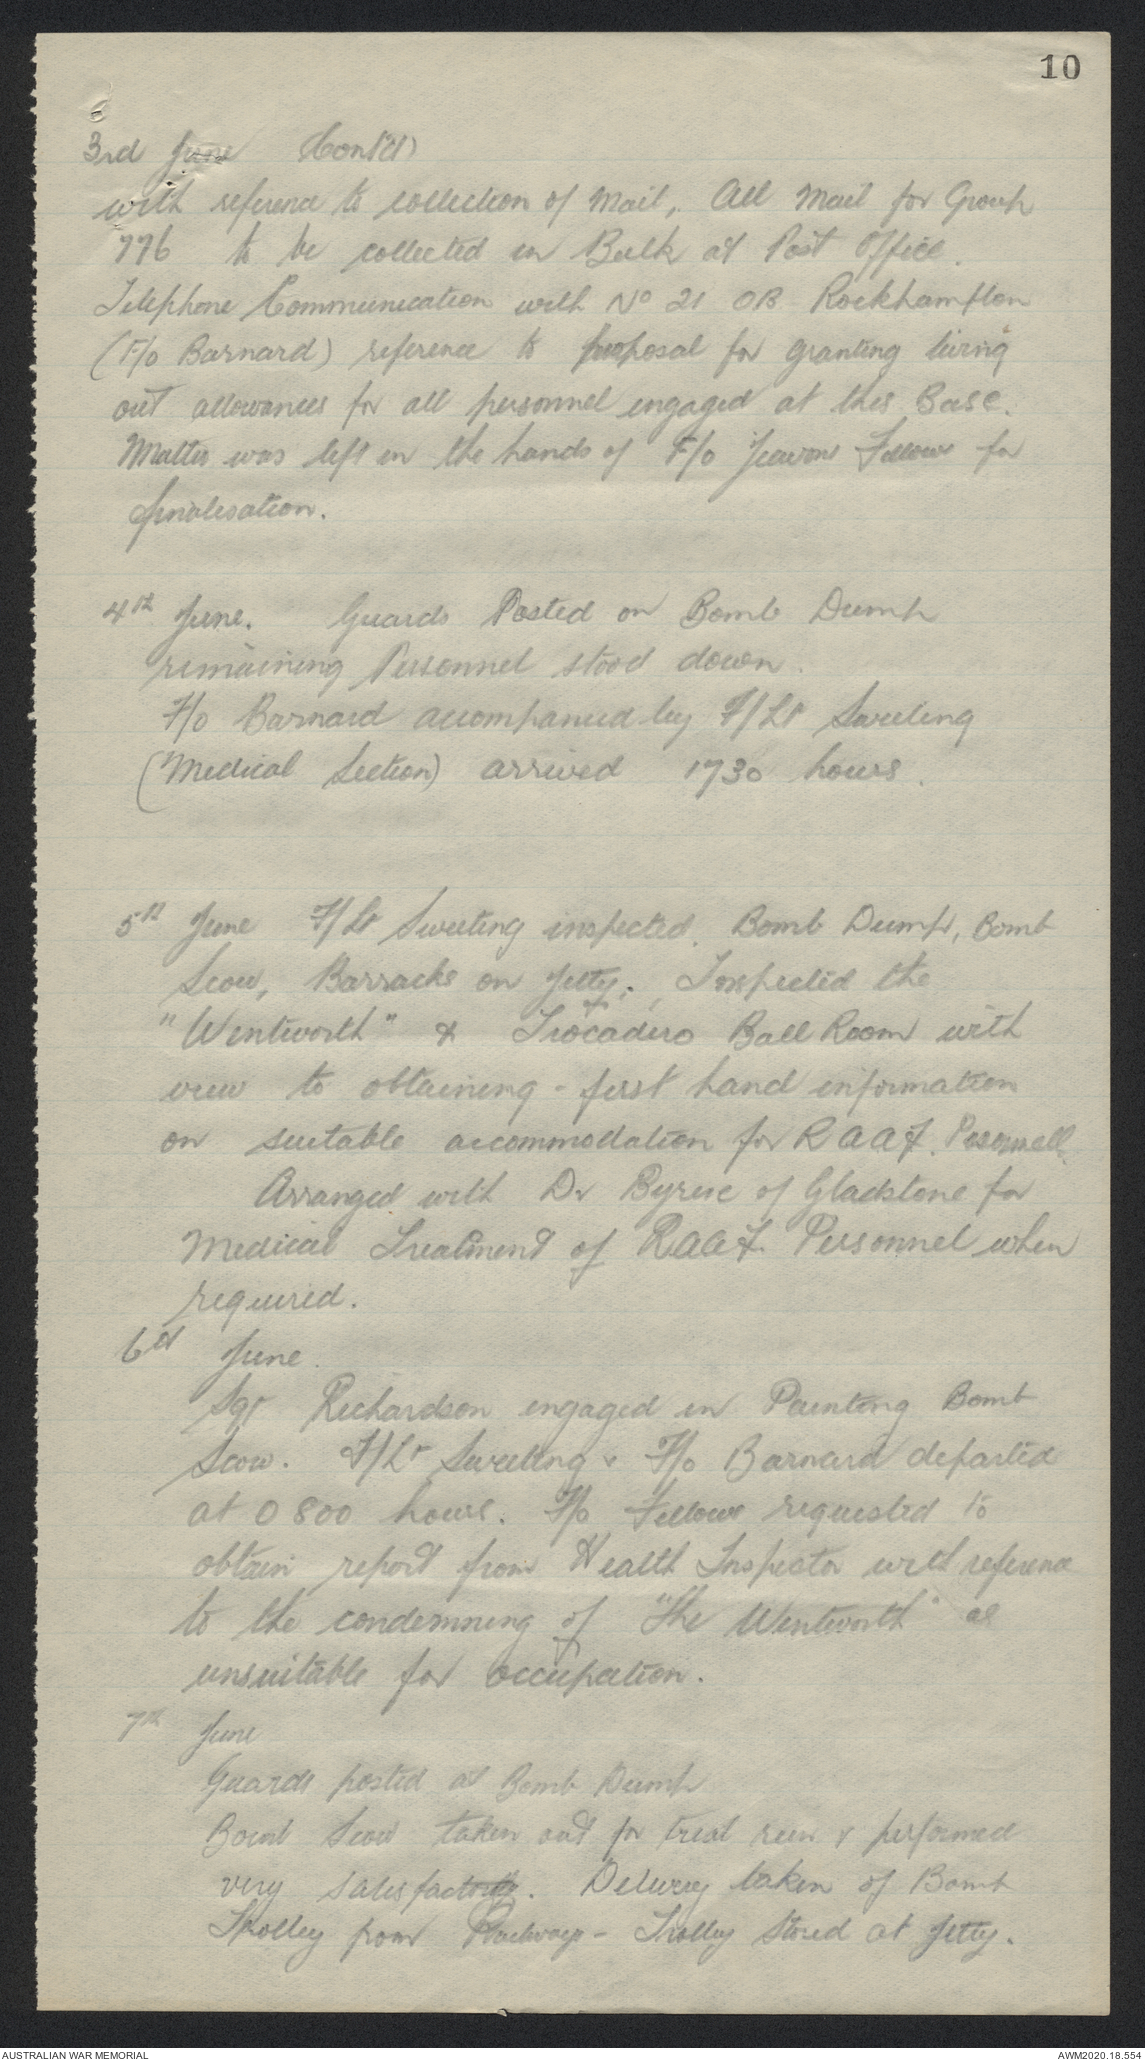 10
3rd June (Cont'd)
with reference to collection of Mail, All Mail for Group
776 to be collected in Bulk at Post Office.
Telephone Communication with No 21 OB Rockhampton
(F/o Barnard) reference to proposal for granting living
out allowances for all personnel engaged at this Base.
Matter was left in the hands of F/o Fellows for
finalisation.
4th June. Guards Posted on Bomb Dump
remaining Personnel stood down.
F/o Barnard accompanied by F/Lt Sweeting
(Medical Section) arrived 1730 hours.
5th June F/Lt Sweeting inspected. Bomb Dump, Bomb
Scow, Barracks on Jetty. Inspected the
"Wentworth" & Trocadero Ball Room with
view to obtaining - first hand information
on suitable accommodation for RAAF. Personnell.
Arranged with Dr Byrne of Gladstone for
Medical Treatment of RAAF. Personnel when
required.
6th June.
Sgt Richardson engaged in Painting Bomb
Scow. F/Lt Sweeting & F/o Barnard departed
at 0800 hours. F/o Fellows requested to
obtain report from Health Inspector with reference
to the condemning of "The Wentworth" as
unsuitable for occupation.
7th June
Guards posted at Bomb Dump
Bomb Scow taken out for trial run & performed
very satisfactorily. Delivery taken of Bomb
Trolley from Railways - Trolley stored at Jetty.
AUSTRALIAN WAR MEMORIAL
AWM2020.18.554